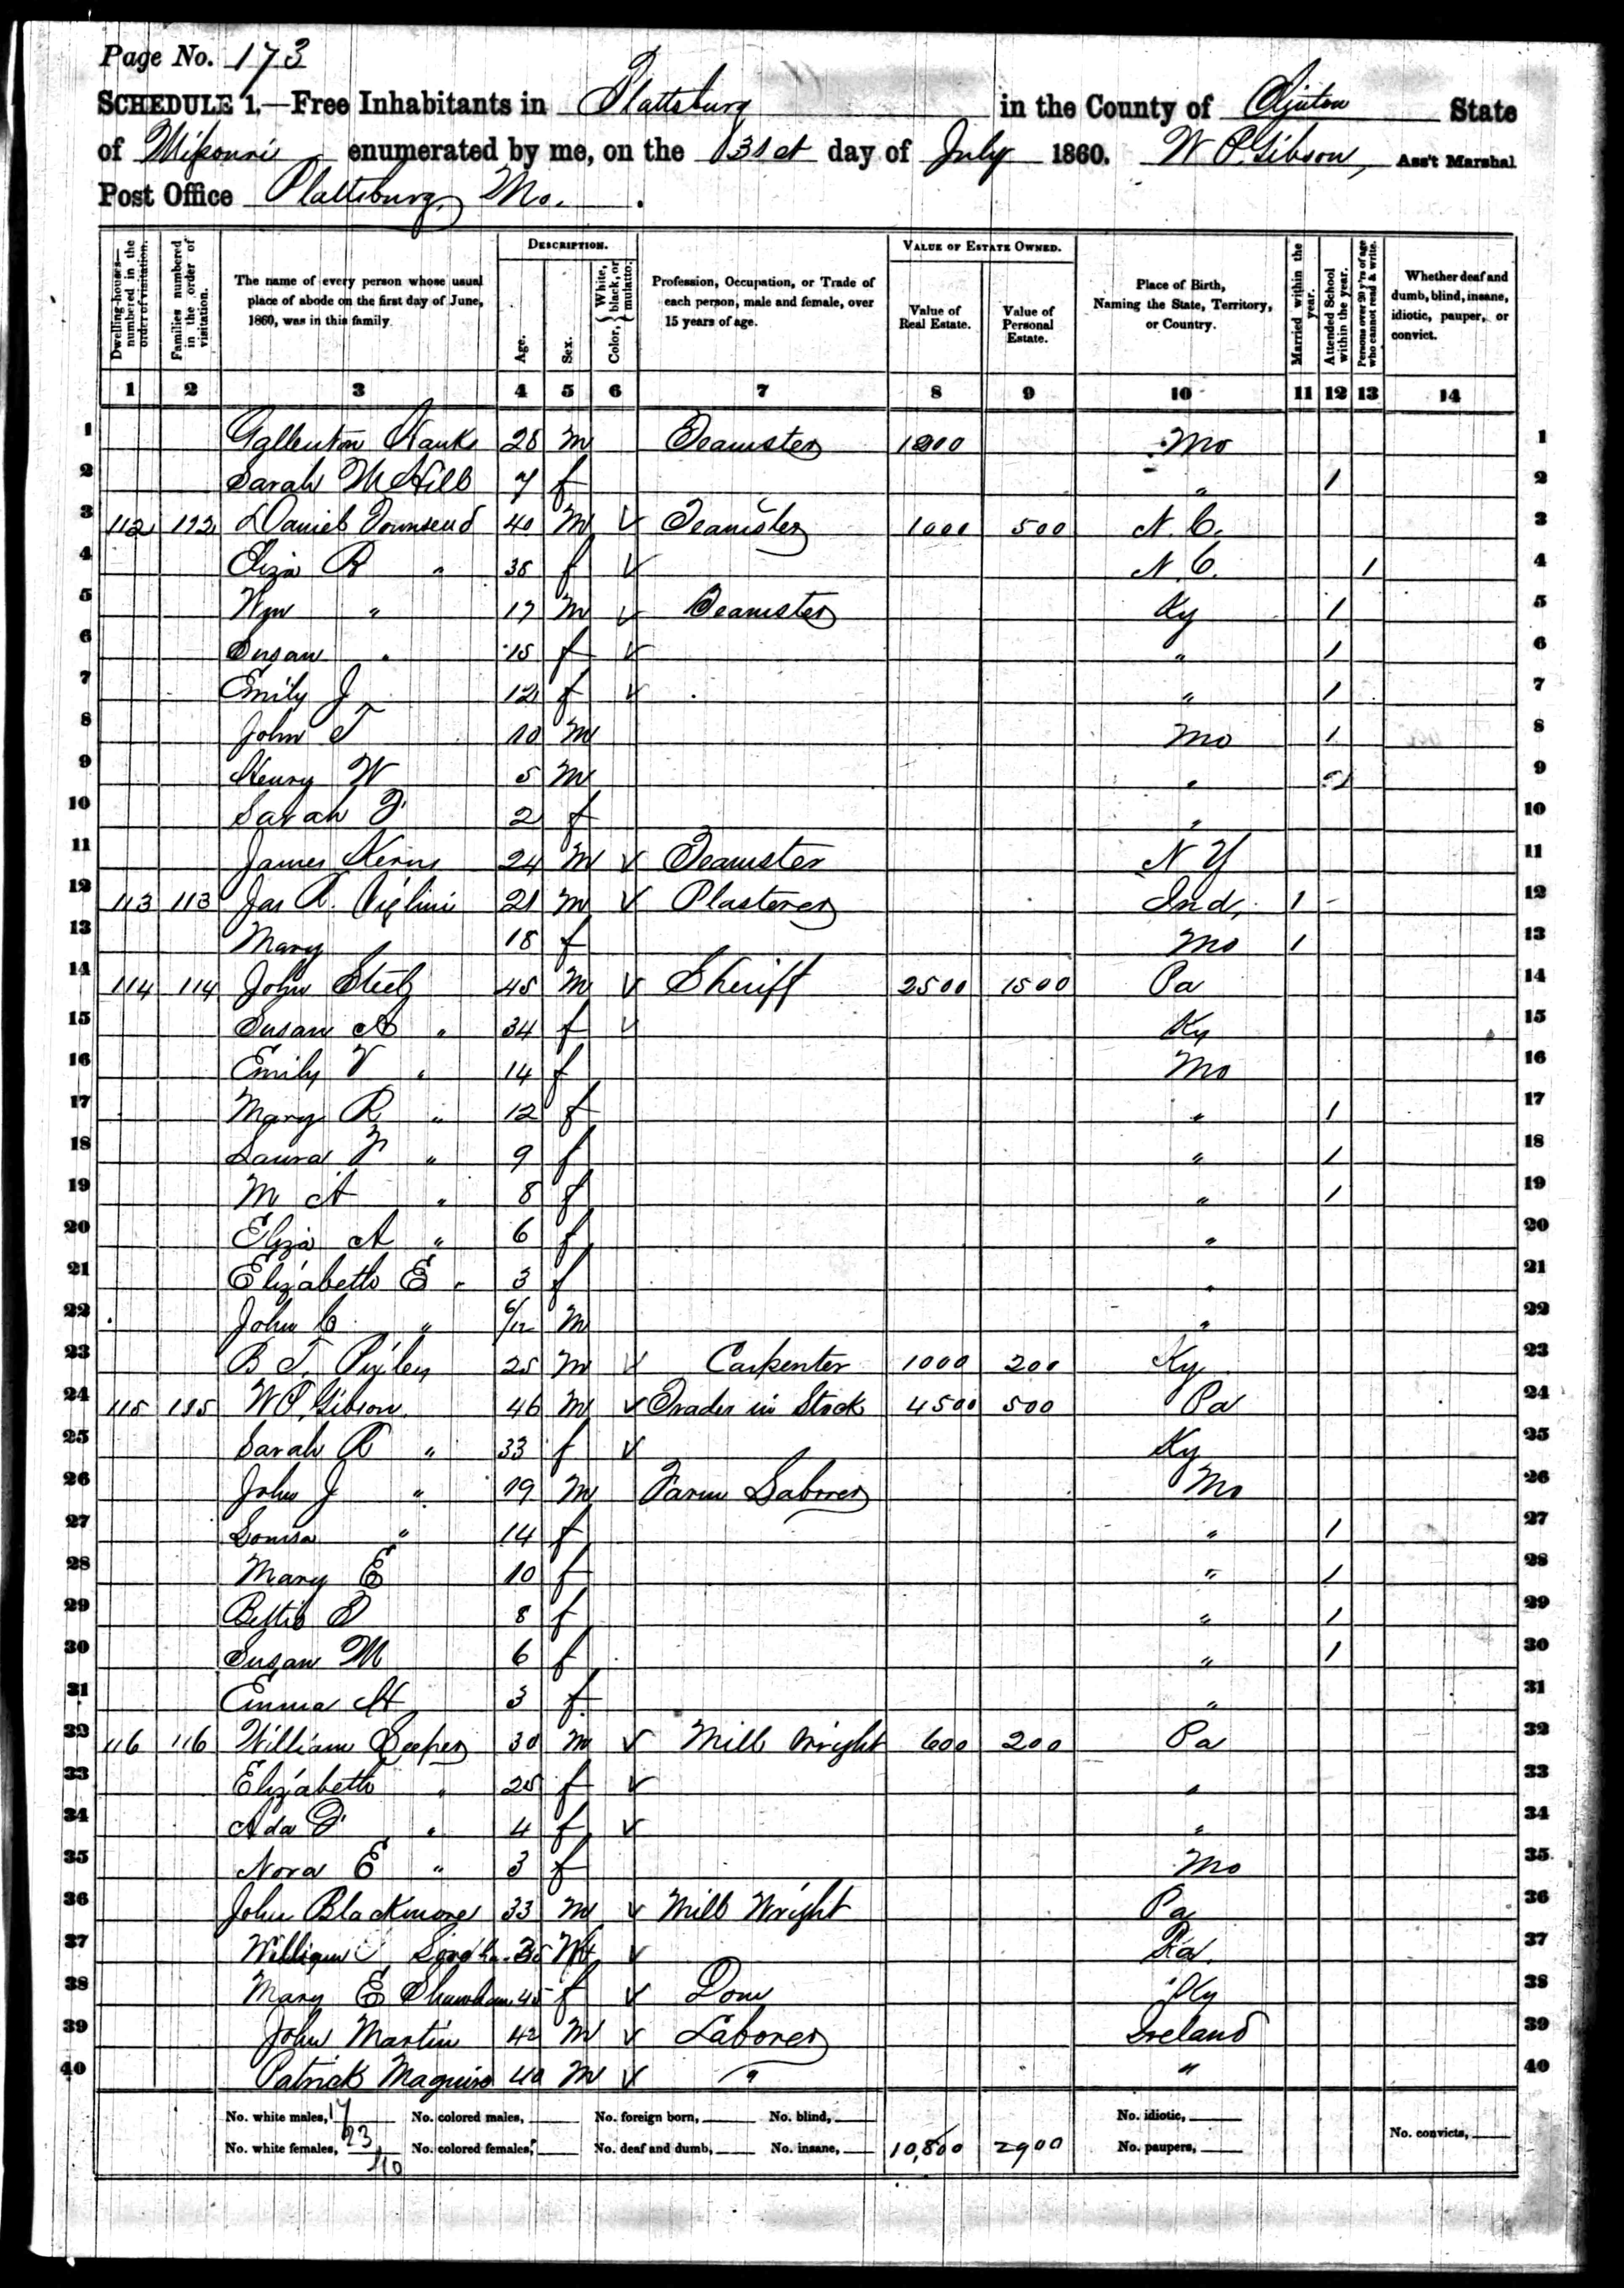 Page No. 173
SCHEDULE 1.—Free Inhabitants in Plattsburg in the County of Clinton State
of Missouri enumerated by me, on the 31st day of July 1860. W P. Gibson, Ass't Marshal
Post Office Plattsburg, Mo.
Dwelling-houses—numbered in the order of visitation. Families numbered in the order of visitation. The name of every person whose usual place of abode on the first day of June, 1860, was in this family. DESCRIPTION. Age. Sex. Color, { White, black, or mulatto. Profession, Occupation, or Trade of each person, male and female, over 15 years of age. VALUE OF ESTATE OWNED. Value of Real Estate. Value of Personal Estate. Place of Birth, Naming the State, Territory, or Country. Married within the year. Attended School within the year. Persons over 20 y'rs of age who cannot read & write. Whether deaf and dumb, blind, insane, idiotic, pauper, or convict.
1 2 3 4 5 6 7 8 9 10 11 12 13 14
1 Hanks 28 m Teamster Mo 1
2 Sarah M Hill 7 f " 1 2
3 112 Daniel Townsend 40 m √ Teamster 1000 500 N. C. 3
4 Eliza R " 38 f √ N. C. 1 4
5 Wm " 17 m √ Teamster Ky 1 5
6 Susan " 15 f √ " 1 6
7 Emily J 12 f √ " 1 7
8 John T 10 m Mo 1 8
9 Henry W 5 m " 9
10 Sarah F 2 f " 10
11 James Kerns 24 m √ Teamster N Y 11
12 113 113 Jas R. 21 m √ Plasterer Ind. 1 12
13 Mary 18 f Mo 1 13
14 114 114 John Steel 45 m √ Sheriff 2500 1500 Pa 14
15 Susan A " 34 f √ Ky 15
16 Emily V " 14 f Mo 16
17 Mary R " 12 f " 1 17
18 Laura F " 9 f " 1 18
19 M A " 8 f " 1 19
20 Eliza A " 6 f " 20
21 Elizabeth E " 3 f " 21
22 John C " 6/12 m " 22
23 B T. Pixley 25 m √ Carpenter 1000 200 Ky 23
24 115 115 W P. Gibson 46 m √ Trader in Stock 4500 500 Pa 24
25 Sarah R " 33 f √ Ky 25
26 John J " 19 m Farm Laborer Mo 26
27 Louisa " 14 f " 1 27
28 Mary E 10 f " 1 28
29 Bettie 8 f " 1 29
30 Susan M 6 f " 1 30
31 Emma H 3 f " 31
32 116 116 William 30 m √ Mill Wright 600 200 Pa 32
33 Elizabeth " 25 f √ " 33
34 Ada F " 4 f √ " 34
35 Nora E " 3 f Mo 35
36 John Blackmore 33 m √ Mill Wright Pa 36
37 William 35 √ 37
38 Mary E 45 f √ Dom Ky 38
39 John Martin 42 m √ Laborer Ireland 39
40 Patrick Maguire 40 m √ " " 40
No. white males, 17 No. colored males, No. foreign born, No. blind, No. idiotic,
No. white females, 23 No. colored females, No. deaf and dumb, No. insane, 10,800 2900 No. paupers, No. convicts,
40